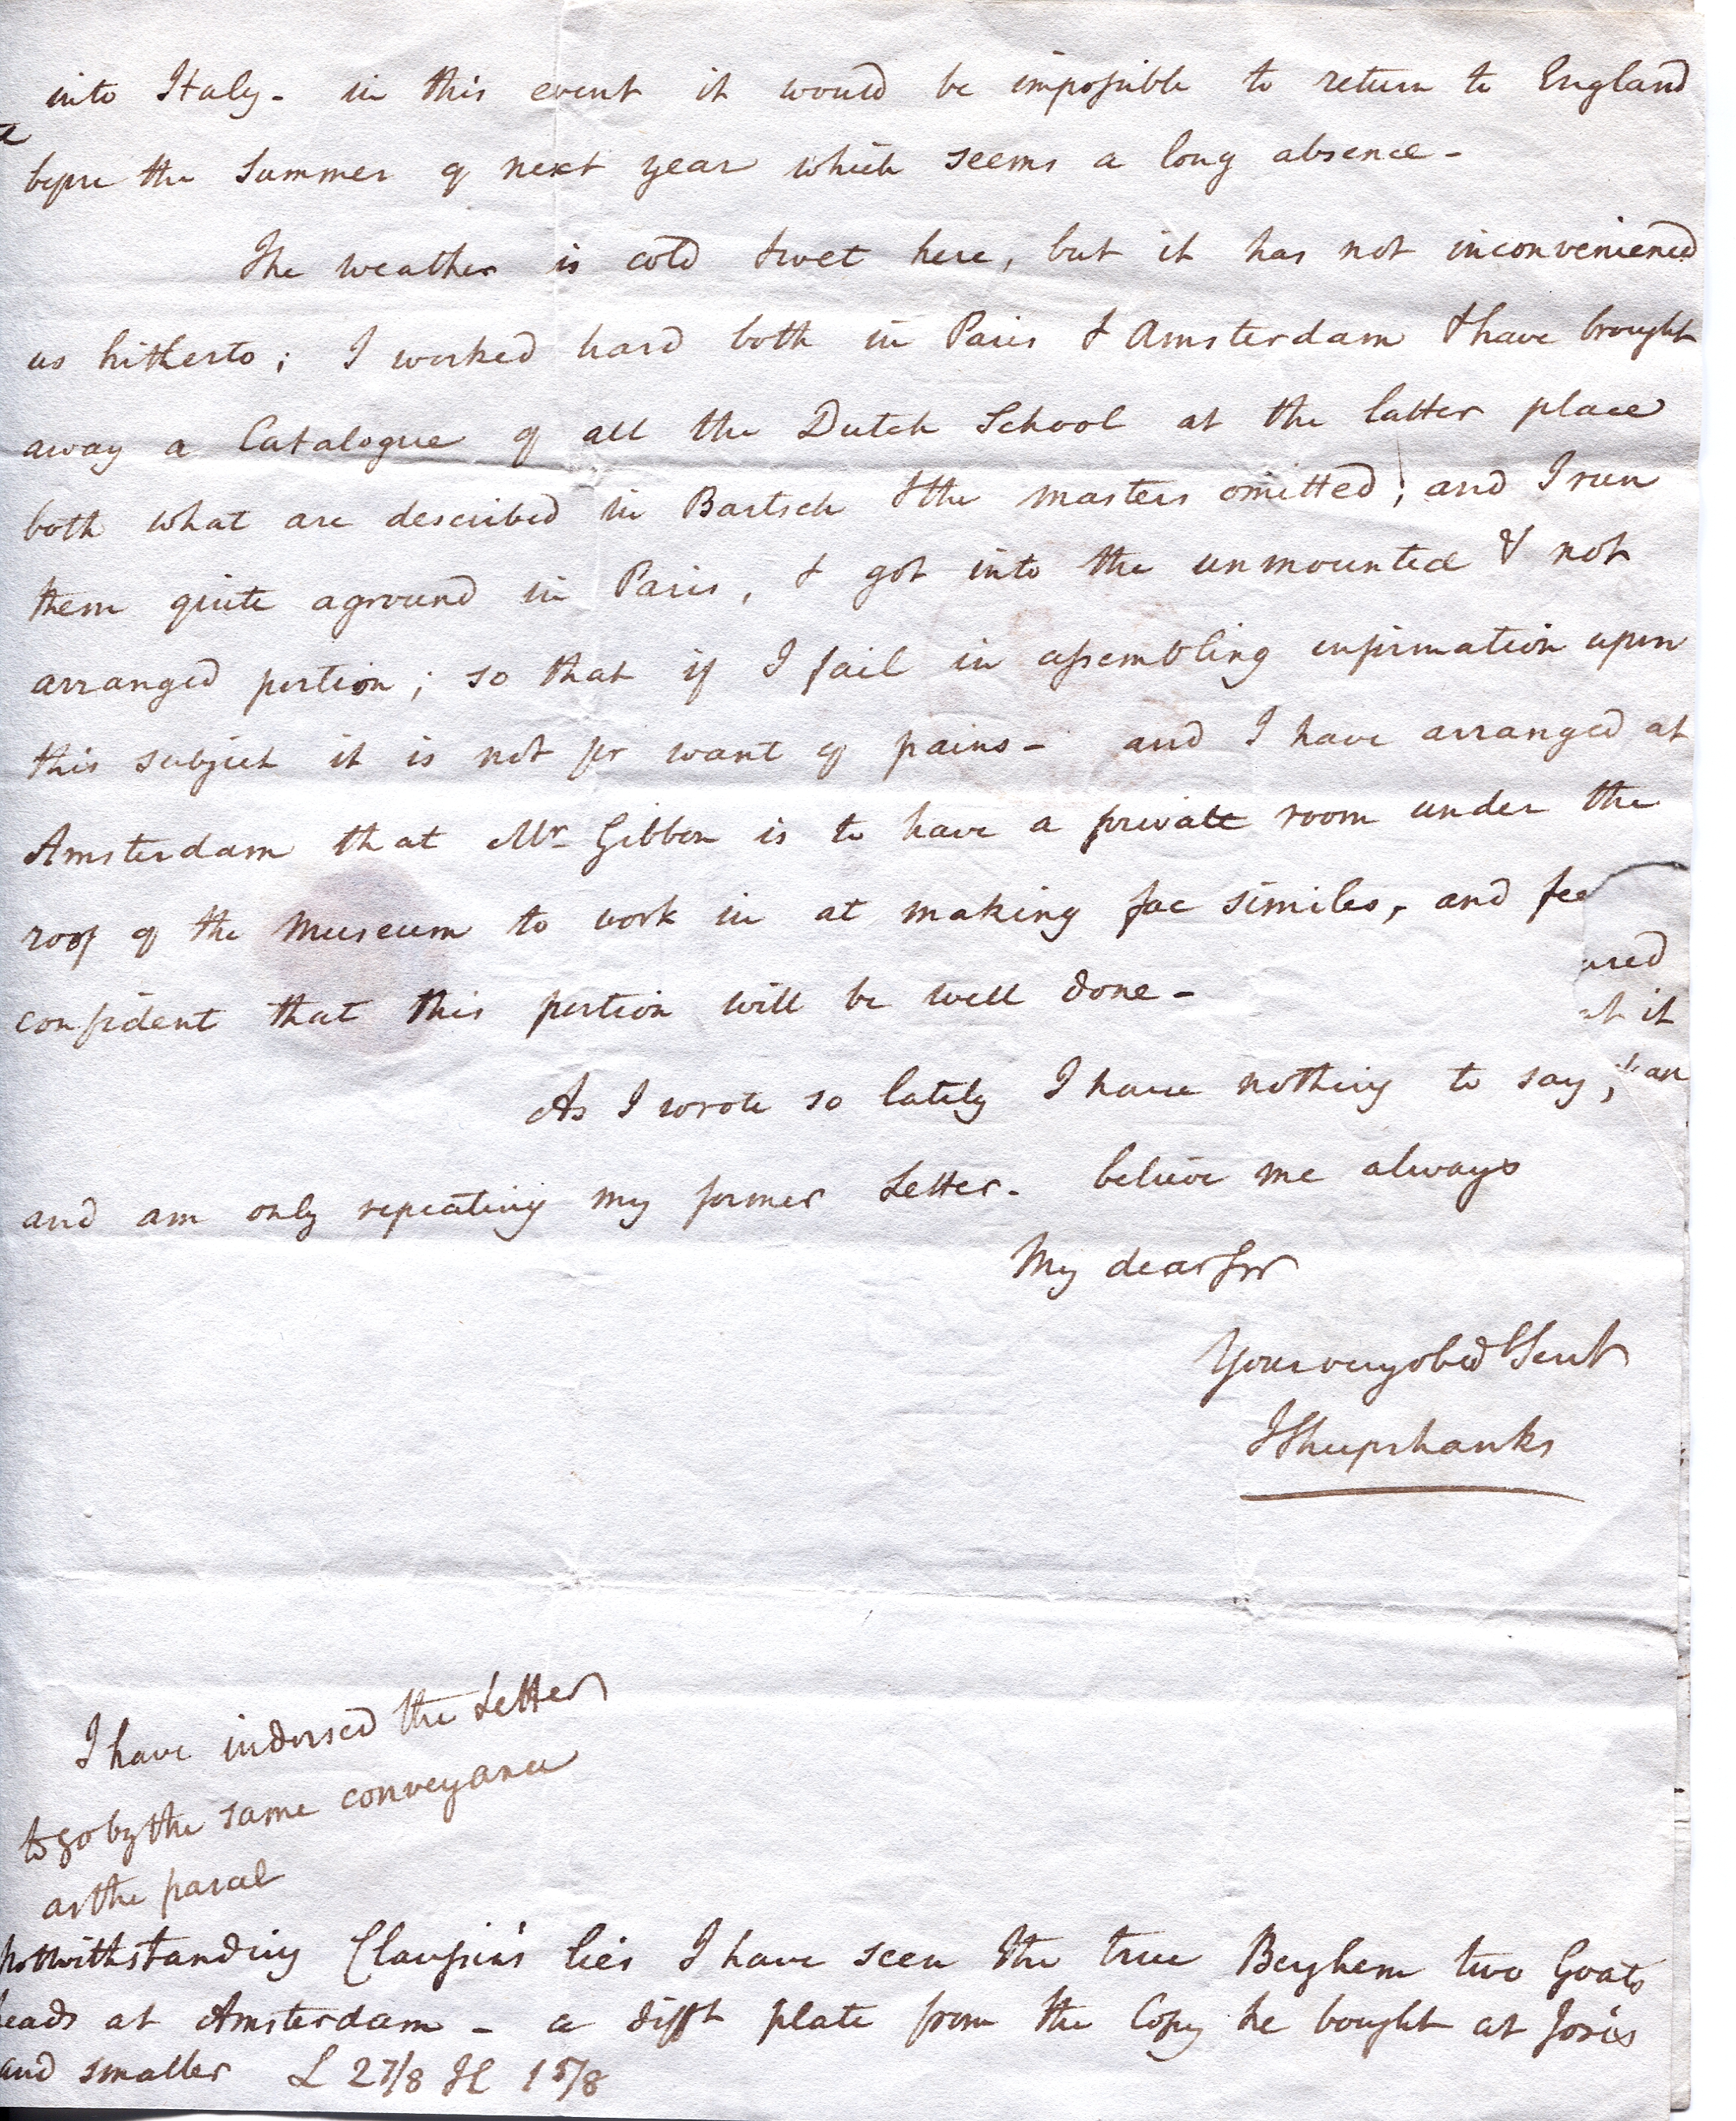 into Italy - in this event it would be impossible to return to England
before the Summer of next year which seems a long absence -
The weather is cold & wet here, but it has not inconvenienced
us hitherto; I worked hard both in Paris & Amsterdam & have brought
away a Catalogue of all the Dutch School at the latter place
both what are described in Bartsch & the masters omitted; and I run
them quite aground in Paris, & got into the unmounted & not
arranged portion; so that if I fail in assembling information upon
this subject it is not for want of pains - and I have arranged at
Amsterdam that Mr Gibbon is to have a private room under the
roof of the Museum to work in at making fac similes, and fee
ured
confident that this portion will be well done -
it
As I wrote so lately I have nothing to say;
an
and am only repeating my former Letter - believe me always
My dear Sir
Your very obed Servt
J Sheepshanks
I have indorsed the Letter
to go by the same conveyance
as the parcel
Notwithstanding Claussin's lies I have seen the true Berghem two Goats
heads at Amsterdam - a difft plate from the Copy he bought at Josi's
and smaller L 2 7/8 H 1 5/8